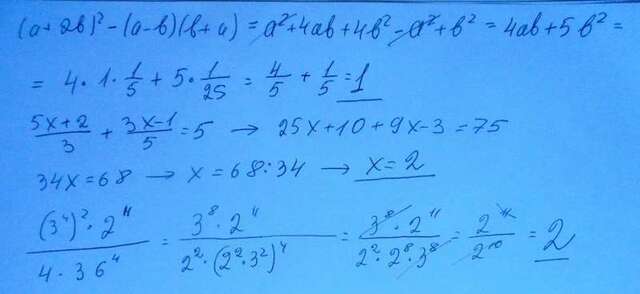 (a+2b)² - (a-b)(b+a) = a²+4ab+4b² - a²+b² = 4ab+5b² =
= 4·1·1/5 + 5·1/25 = 4/5 + 1/5 = 1
(5x+2)/3 + (3x-1)/5 = 5 → 25x+10+9x-3=75
34x=68 → x=68:34 → x=2
((3⁴)²·2¹¹)/(4·36⁴) = (3⁸·2¹¹)/(2²·(2²·3²)⁴) = (3⁸·2¹¹)/(2²·2⁸·3⁸) = 2¹¹/2¹⁰ = 2